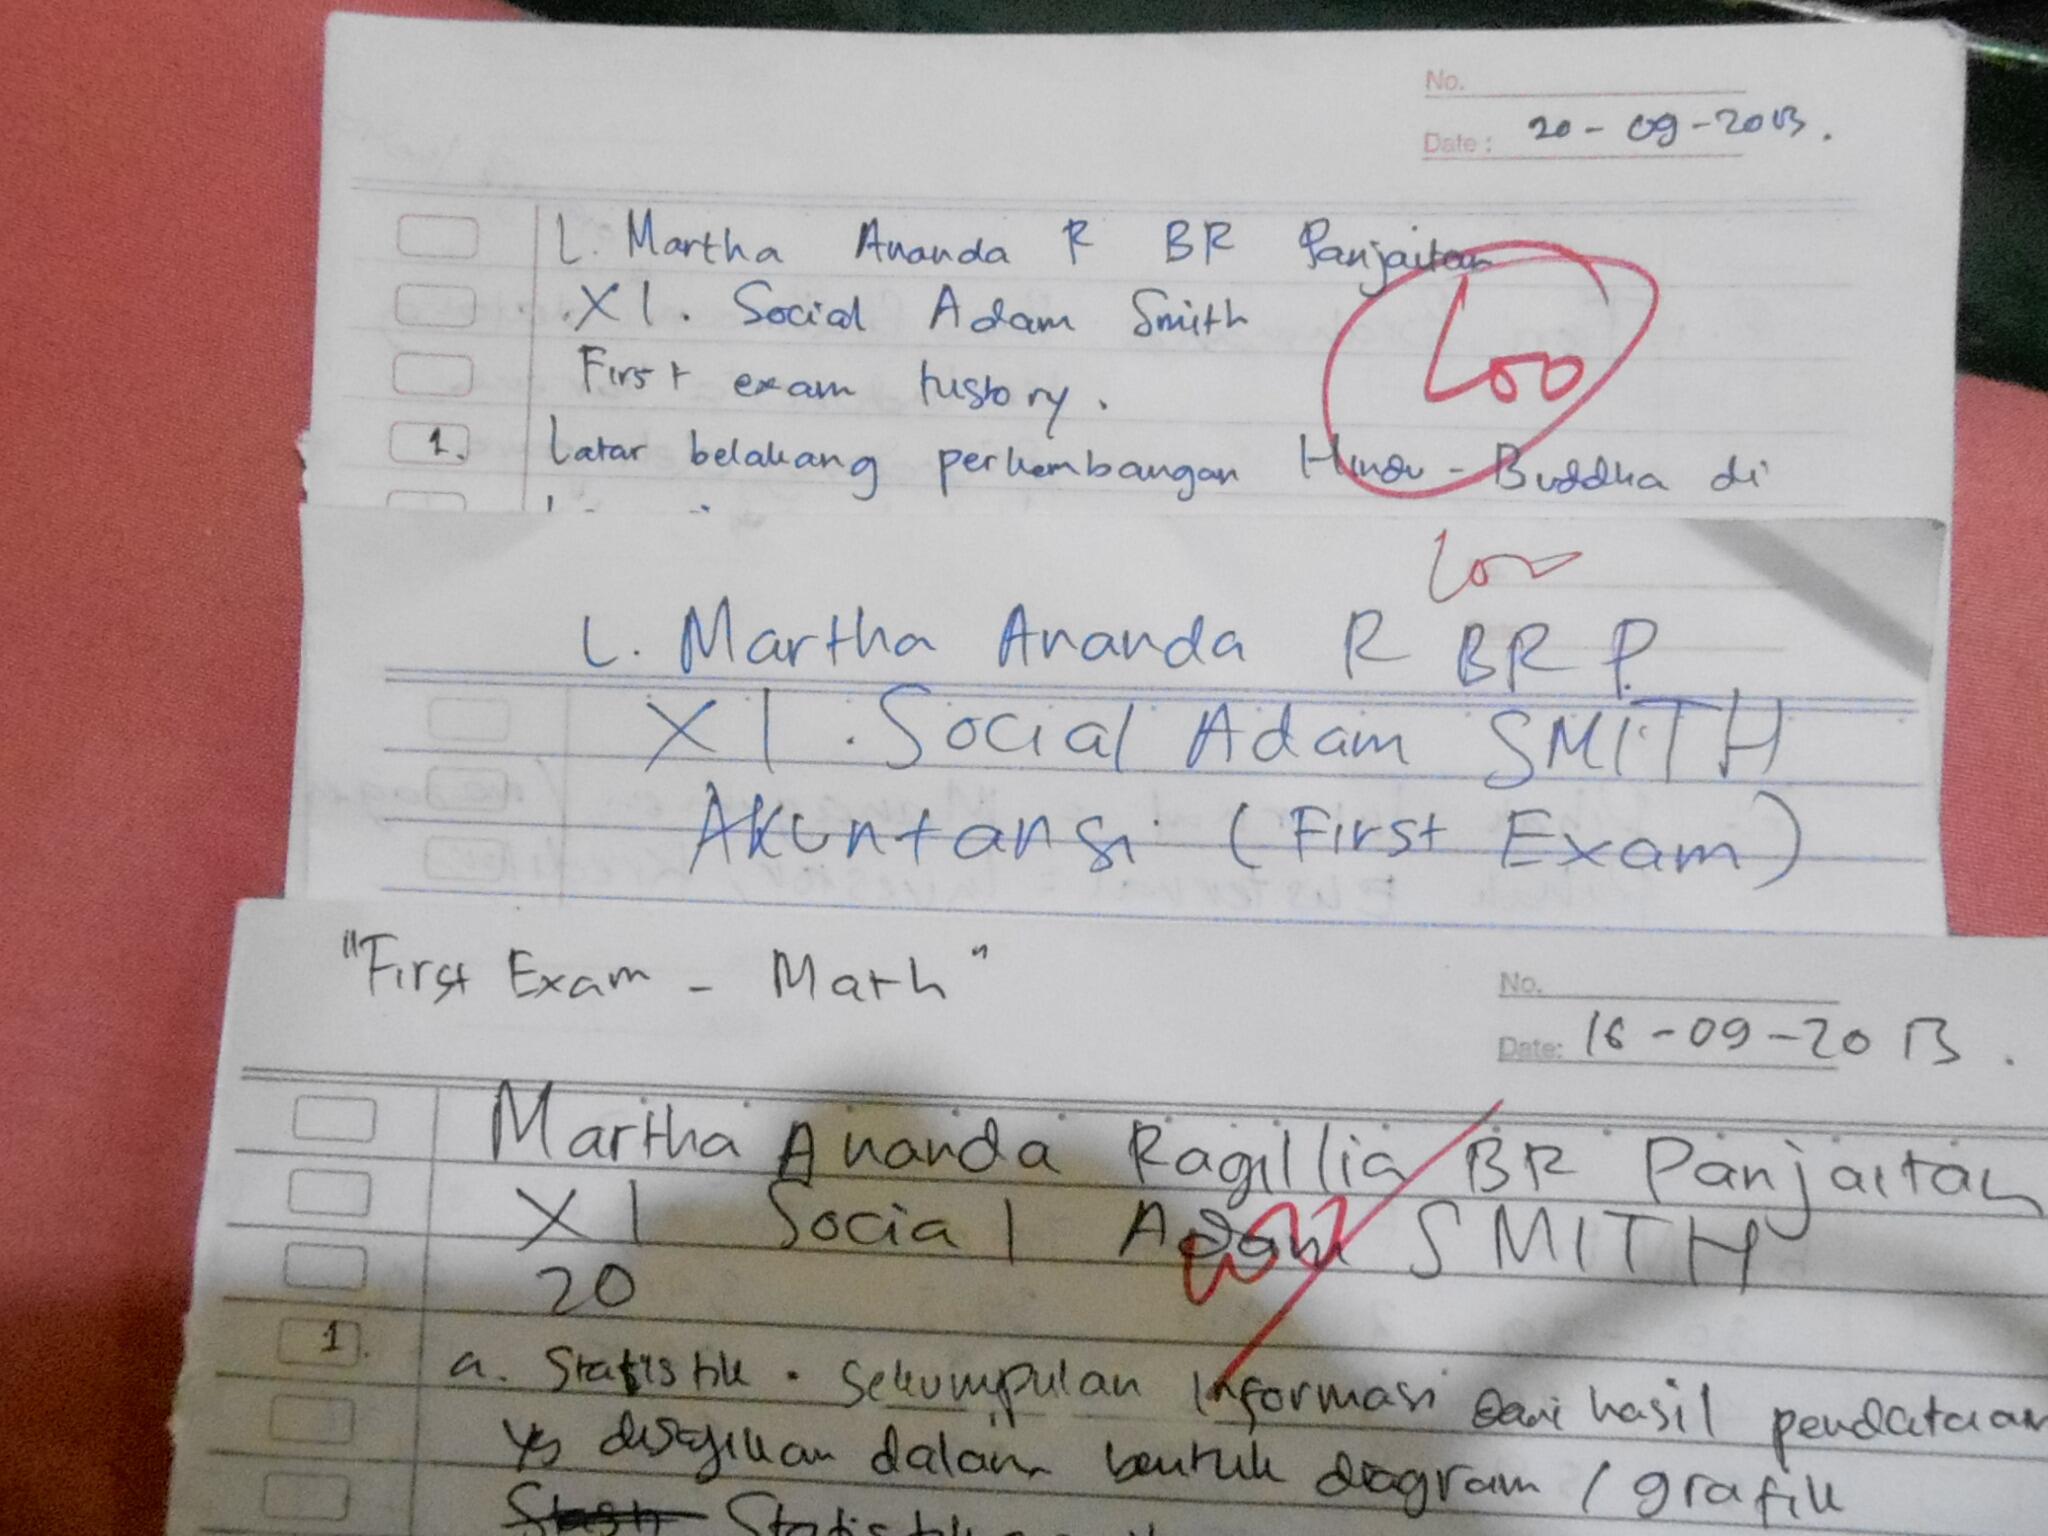 No.
Date: 20-09-2013.
L. Martha Ananda R BR Panjaitan
XI. Social Adam Smith
100
First exam history.
1. Latar belakang perkembangan Hindu-Buddha di
100
L. Martha Ananda R BR P.
XI. Social Adam SMITH
Akuntansi (First Exam)
"First Exam - Math"
No.
Date: 16-09-2013.
Martha Ananda Ragillia BR Panjaitan
XI Social Adam SMITH
100
20
1. a. Statistik. Sekumpulan informasi dari hasil pendataan
yg disajikan dalam bentuk diagram / grafik
Statistik